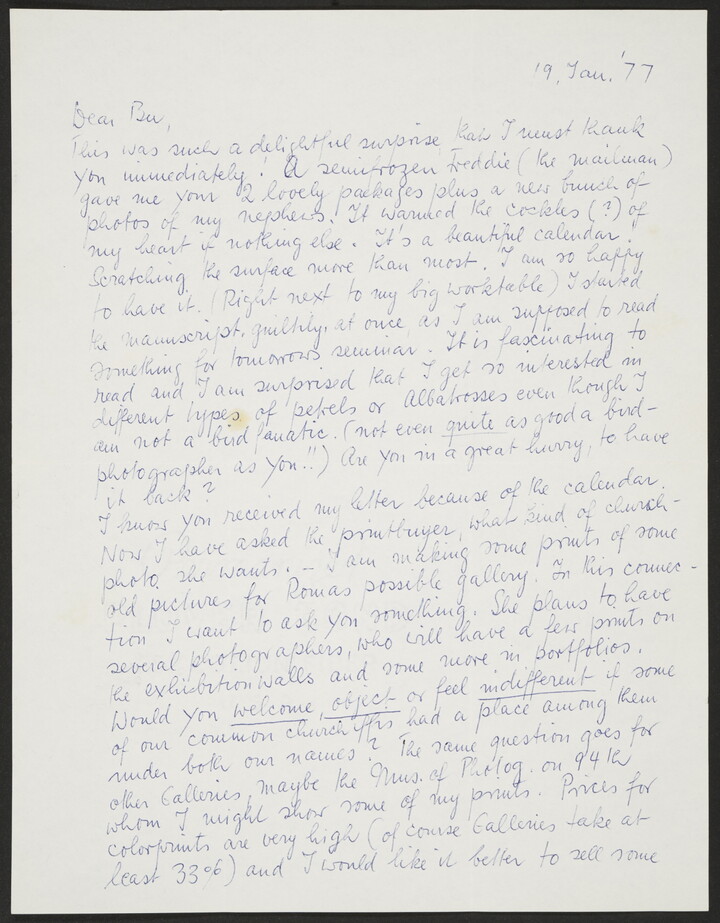 19, Jan. '77
Dear Bu,
This was such a delightful surprise, that I must thank
you immediately! A semifrozen Freddie (the mailman)
gave me your 2 lovely packages plus a new bunch of
photos of my nephews. It warmed the cockles (?) of
my heart if nothing else. It's a beautiful calendar!
Scratching the surface more than most. I am so happy
to have it. (Right next to my big worktable) I started
the manuscript, guiltily, at once, as I am supposed to read
something for tomorrows seminar. It is fascinating to
read and I am surprised that I get so interested in
different types of petrels or Albatrosses even though I
am not a bird fanatic. (not even quite as good a bird-
photographer as you!!) Are you in a great hurry, to have
it back?
I know you received my letter because of the calendar.
Now I have asked the printbuyer, what kind of church-
photo she wants. – I am making some prints of some
old pictures for Romas possible gallery. In this connec-
tion I want to ask you something. She plans to have
several photographers, who will have a few prints on
the exhibition walls and some more in portfolios.
Would you welcome, object or feel indifferent if some
of our common church had a place among them
under both our names? The same question goes for
other Galleries, maybe the Mus. of Photog. on 94th
whom I might show some of my prints. Prices for
colorprints are very high (of course Galleries take at
least 33%) and I would like it better to sell some